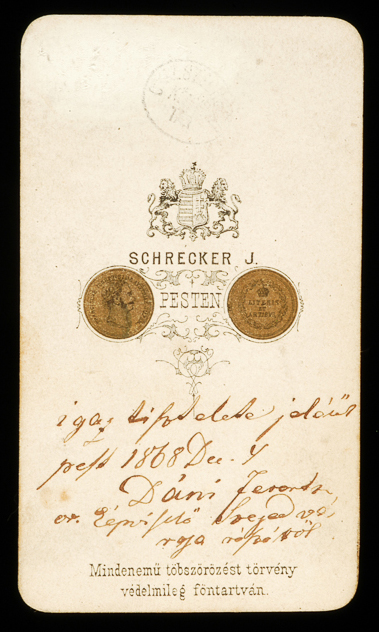 SCHRECKER J.
PESTEN
LITERIS ET ARTIBUS
igaz tisztelete jeléül
pest 1868 Dec. 4
Dáni Ferentz
or. képviselő Szeged vá-
rosa részéről
Mindenemű tobszörözést törvény
védelmileg föntartván.